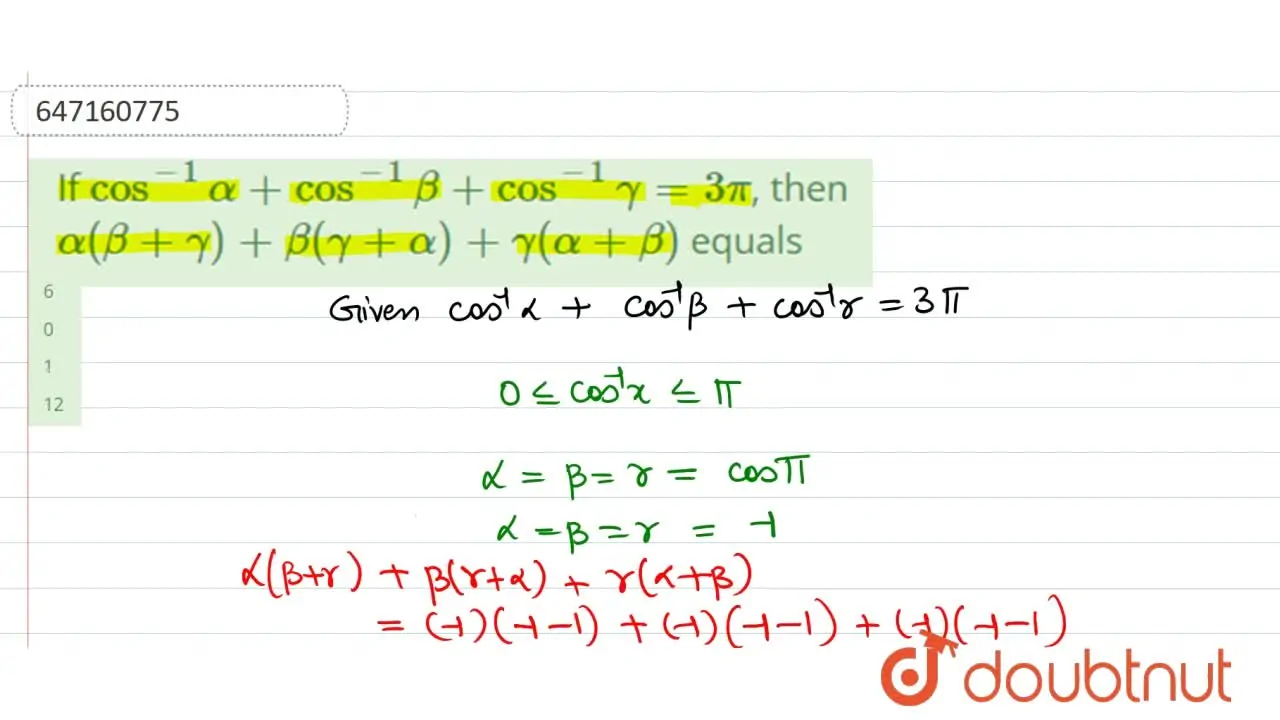 647160775
If cos⁻¹ α + cos⁻¹ β + cos⁻¹ γ = 3π, then
α(β + γ) + β(γ + α) + γ(α + β) equals
6
0
1
12
Given cos⁻¹α + cos⁻¹β + cos⁻¹r = 3π
0 ≤ cos⁻¹x ≤ π
α = β = r = cosπ
α = β = r = -1
α(β+r) + β(r+α) + r(α+β)
= (-1)(-1-1) + (-1)(-1-1) + (-1)(-1-1)
doubtnut